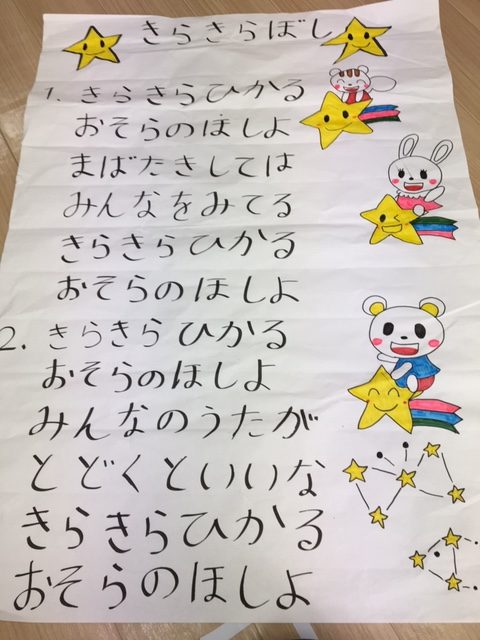 きらきらぼし
1. きらきらひかる
おそらのほしよ
まばたきしては
みんなをみてる
きらきらひかる
おそらのほしよ
2. きらきらひかる
おそらのほしよ
みんなのうたが
とどくといいな
きらきらひかる
おそらのほしよ